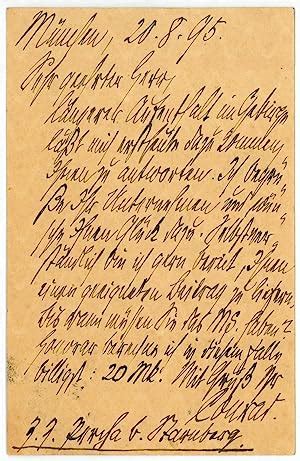 München, 20.8.95.
Sehr geehrter Herr,
Längerer Aufenthalt im Gebirge
läßt mich erst heute dazu kommen,
Ihnen zu antworten. Ich begrü-
ße Ihr Unternehmen und wün-
sche Ihnen Glück dazu. Selbstver-
ständlich bin ich gern bereit, Ihnen
einen geeigneten Beitrag zu liefern.
Bis wann müßen Sie das MS. haben?
Honorar berechne ich in diesem Falle
billigst: 20 Mk. Mit Gruß Ihr
Conrad.
z. Z. Percha b. Starnberg.